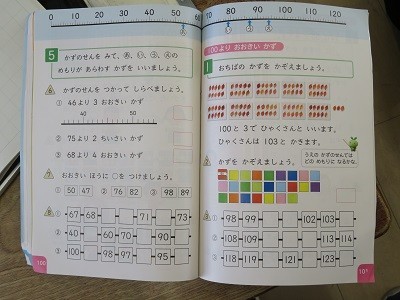 0 10 20 30 40 50 60
5 かずのせんを みて、あ、い、う、えの
めもりが あらわす かずを いいましょう。
かずのせんを つかって しらべましょう。
① 46より 3 おおきい かず
40 50
② 75より 2 ちいさい かず
③ 68より 4 おおきい かず
おおきい ほうに ○を つけましょう。
① 50 47 ② 76 82 ③ 98 89
① 67 68 71 73
② 40 60 70 90
③ 100 98 97 95
100
70 80 90 100 110 120
100より おおきい かず
1 おちばの かずを かぞえましょう。
100と 3で ひゃくさんと いいます。
ひゃくさんは 103と かきます。
かずを かぞえましょう。
うえの かずのせんでは
どの めもりに なるかな。
① 98 99 102 103
② 108 109 113 114
③ 118 119 121 123
101